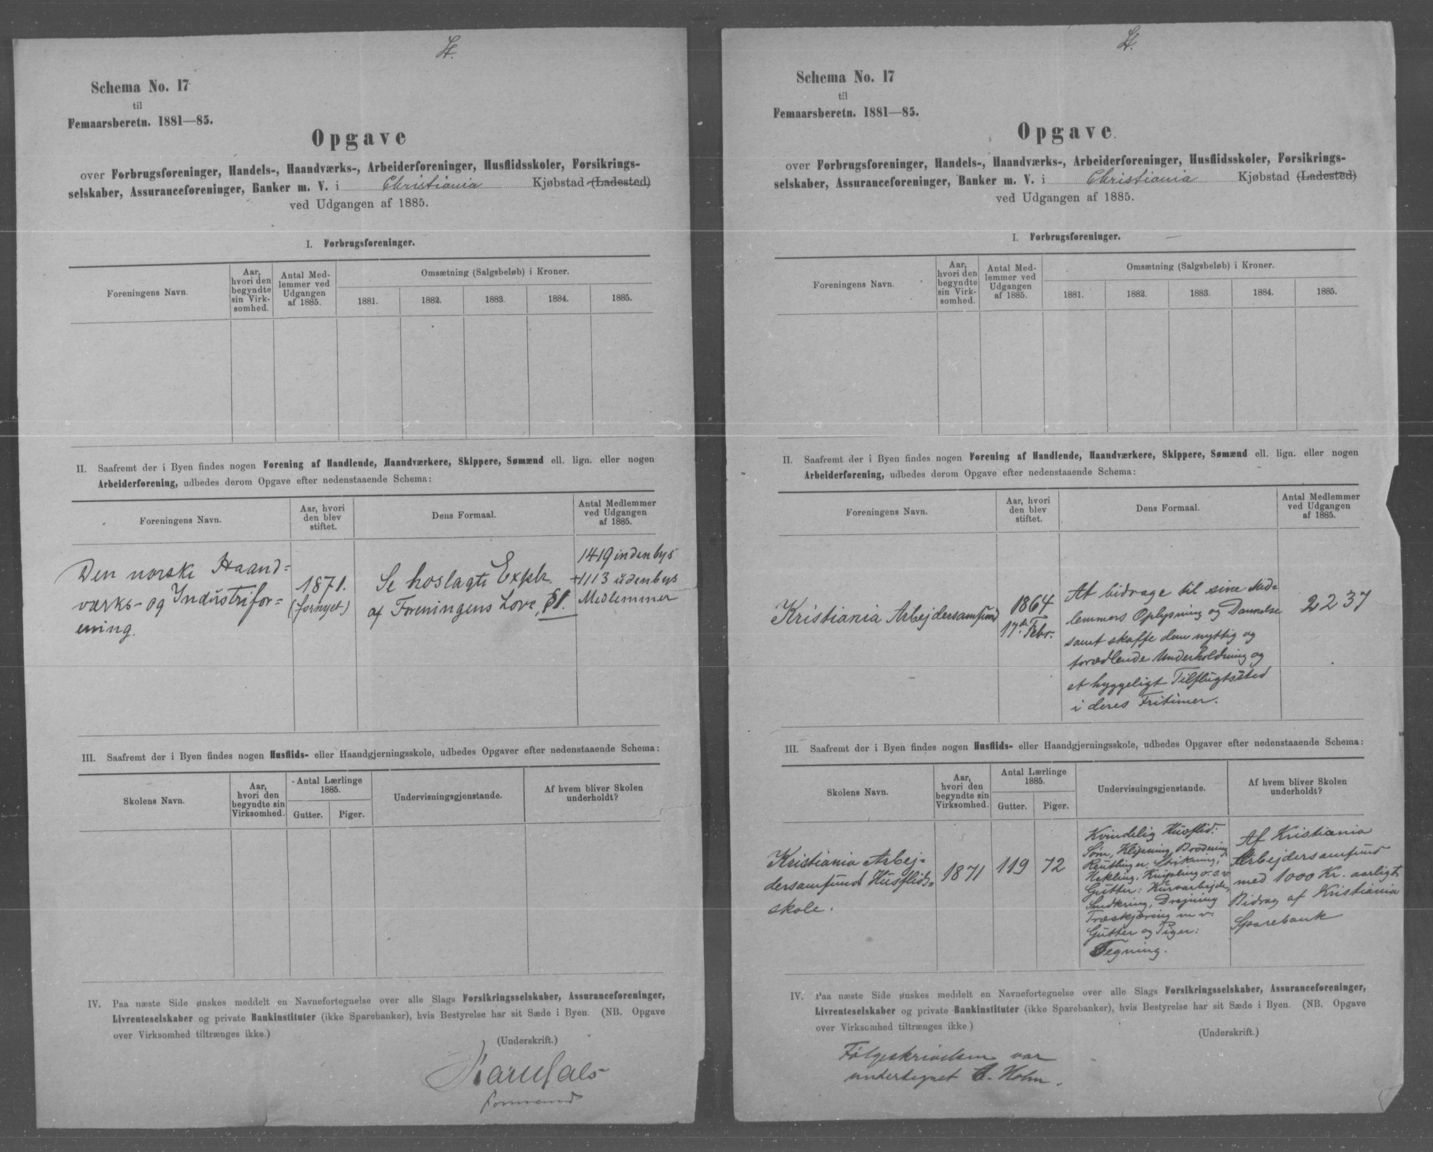 Schema No. 17
til
Femaarsberetn. 1881—85.
Opgave
over Forbrugsforeninger, Handels-, Haandværks-, Arbeiderforeninger, Husflidsskoler, Forsikrings-
selskaber, Assuranceforeninger, Banker m. V. i Christiania Kjøbstad (Ladested)
ved Udgangen af 1885.
I. Forbrugsforeninger.
Foreningens Navn.
Aar, hvori den begyndte sin Virk-somhed.
Antal Med-lemmer ved Udgangen af 1885.
Omsætning (Salgsbeløb) i Kroner.
1881. 1882. 1883. 1884. 1885.
II. Saafremt der i Byen findes nogen Forening af Handlende, Haandværkere, Skippere, Sømænd ell. lign. eller nogen
Arbeiderforening, udbedes derom Opgave efter nedenstaaende Schema:
Foreningens Navn.
Aar, hvori den blev stiftet.
Dens Formaal.
Antal Medlemmer ved Udgangen af 1885.
Den norske Haand-
værks- og Industrifor-
ening.
1871.
(fornyet)
Se hoslagte Explr.
af Foreningens Love, §1.
1419 indenbys
+1113 udenbys
Medlemmer
III. Saafremt der i Byen findes nogen Husflids- eller Haandgjerningsskole, udbedes Opgaver efter nedenstaaende Schema:
Skolens Navn.
Aar, hvori den begyndte sin Virksomhed.
Antal Lærlinge 1885.
Gutter. Piger.
Undervisningsgjenstande.
Af hvem bliver Skolen underholdt?
IV. Paa næste Side ønskes meddelt en Navnefortegnelse over alle Slags Forsikringsselskaber, Assuranceforeninger,
Livrenteselskaber og private Bankinstituter (ikke Sparebanker), hvis Bestyrelse har sit Sæde i Byen. (NB. Opgave
over Virksomhed tiltrænges ikke.)
(Underskrift.)
formand
Schema No. 17
til
Femaarsberetn. 1881—85.
Opgave
over Forbrugsforeninger, Handels-, Haandværks-, Arbeiderforeninger, Husflidsskoler, Forsikrings-
selskaber, Assuranceforeninger, Banker m. V. i Christiania Kjøbstad (Ladested)
ved Udgangen af 1885.
I. Forbrugsforeninger.
Foreningens Navn.
Aar, hvori den begyndte sin Virk-somhed.
Antal Med-lemmer ved Udgangen af 1885.
Omsætning (Salgsbeløb) i Kroner.
1881. 1882. 1883. 1884. 1885.
II. Saafremt der i Byen findes nogen Forening af Handlende, Haandværkere, Skippere, Sømænd ell. lign. eller nogen
Arbeiderforening, udbedes derom Opgave efter nedenstaaende Schema:
Foreningens Navn.
Aar, hvori den blev stiftet.
Dens Formaal.
Antal Medlemmer ved Udgangen af 1885.
Kristiania Arbejdersamfund
1864
17de Febr.
At bidrage til sine Med-
lemmers Oplysning og Dannelse
samt skaffe dem nyttig og
forædlende Underholdning og
et hyggeligt Tilflugtssted
i deres Fritimer.
2237
III. Saafremt der i Byen findes nogen Husflids- eller Haandgjerningsskole, udbedes Opgaver efter nedenstaaende Schema:
Skolens Navn.
Aar, hvori den begyndte sin Virksomhed.
Antal Lærlinge 1885.
Gutter. Piger.
Undervisningsgjenstande.
Af hvem bliver Skolen underholdt?
Kristiania Arbej-
dersamfunds Husflids-
skole.
1871
119
72
Kvindelig Husflid:
Søm, Klipning, Brodering
Strikning,
Hekling, Knipling o.s.v.
Gutter: Kurvarbejde,
Snedkring, Drejning
Træskjæring m v.
Gutter og Piger:
Tegning.
Af Kristiania
Arbejdersamfund
med 1000 Kr. aarligt
Bidrag af Kristiania
Sparebank
IV. Paa næste Side ønskes meddelt en Navnefortegnelse over alle Slags Forsikringsselskaber, Assuranceforeninger,
Livrenteselskaber og private Bankinstituter (ikke Sparebanker), hvis Bestyrelse har sit Sæde i Byen. (NB. Opgave
over Virksomhed tiltrænges ikke.)
(Underskrift.)
Følgeskrivelsen var
undertegnet C. Holm.